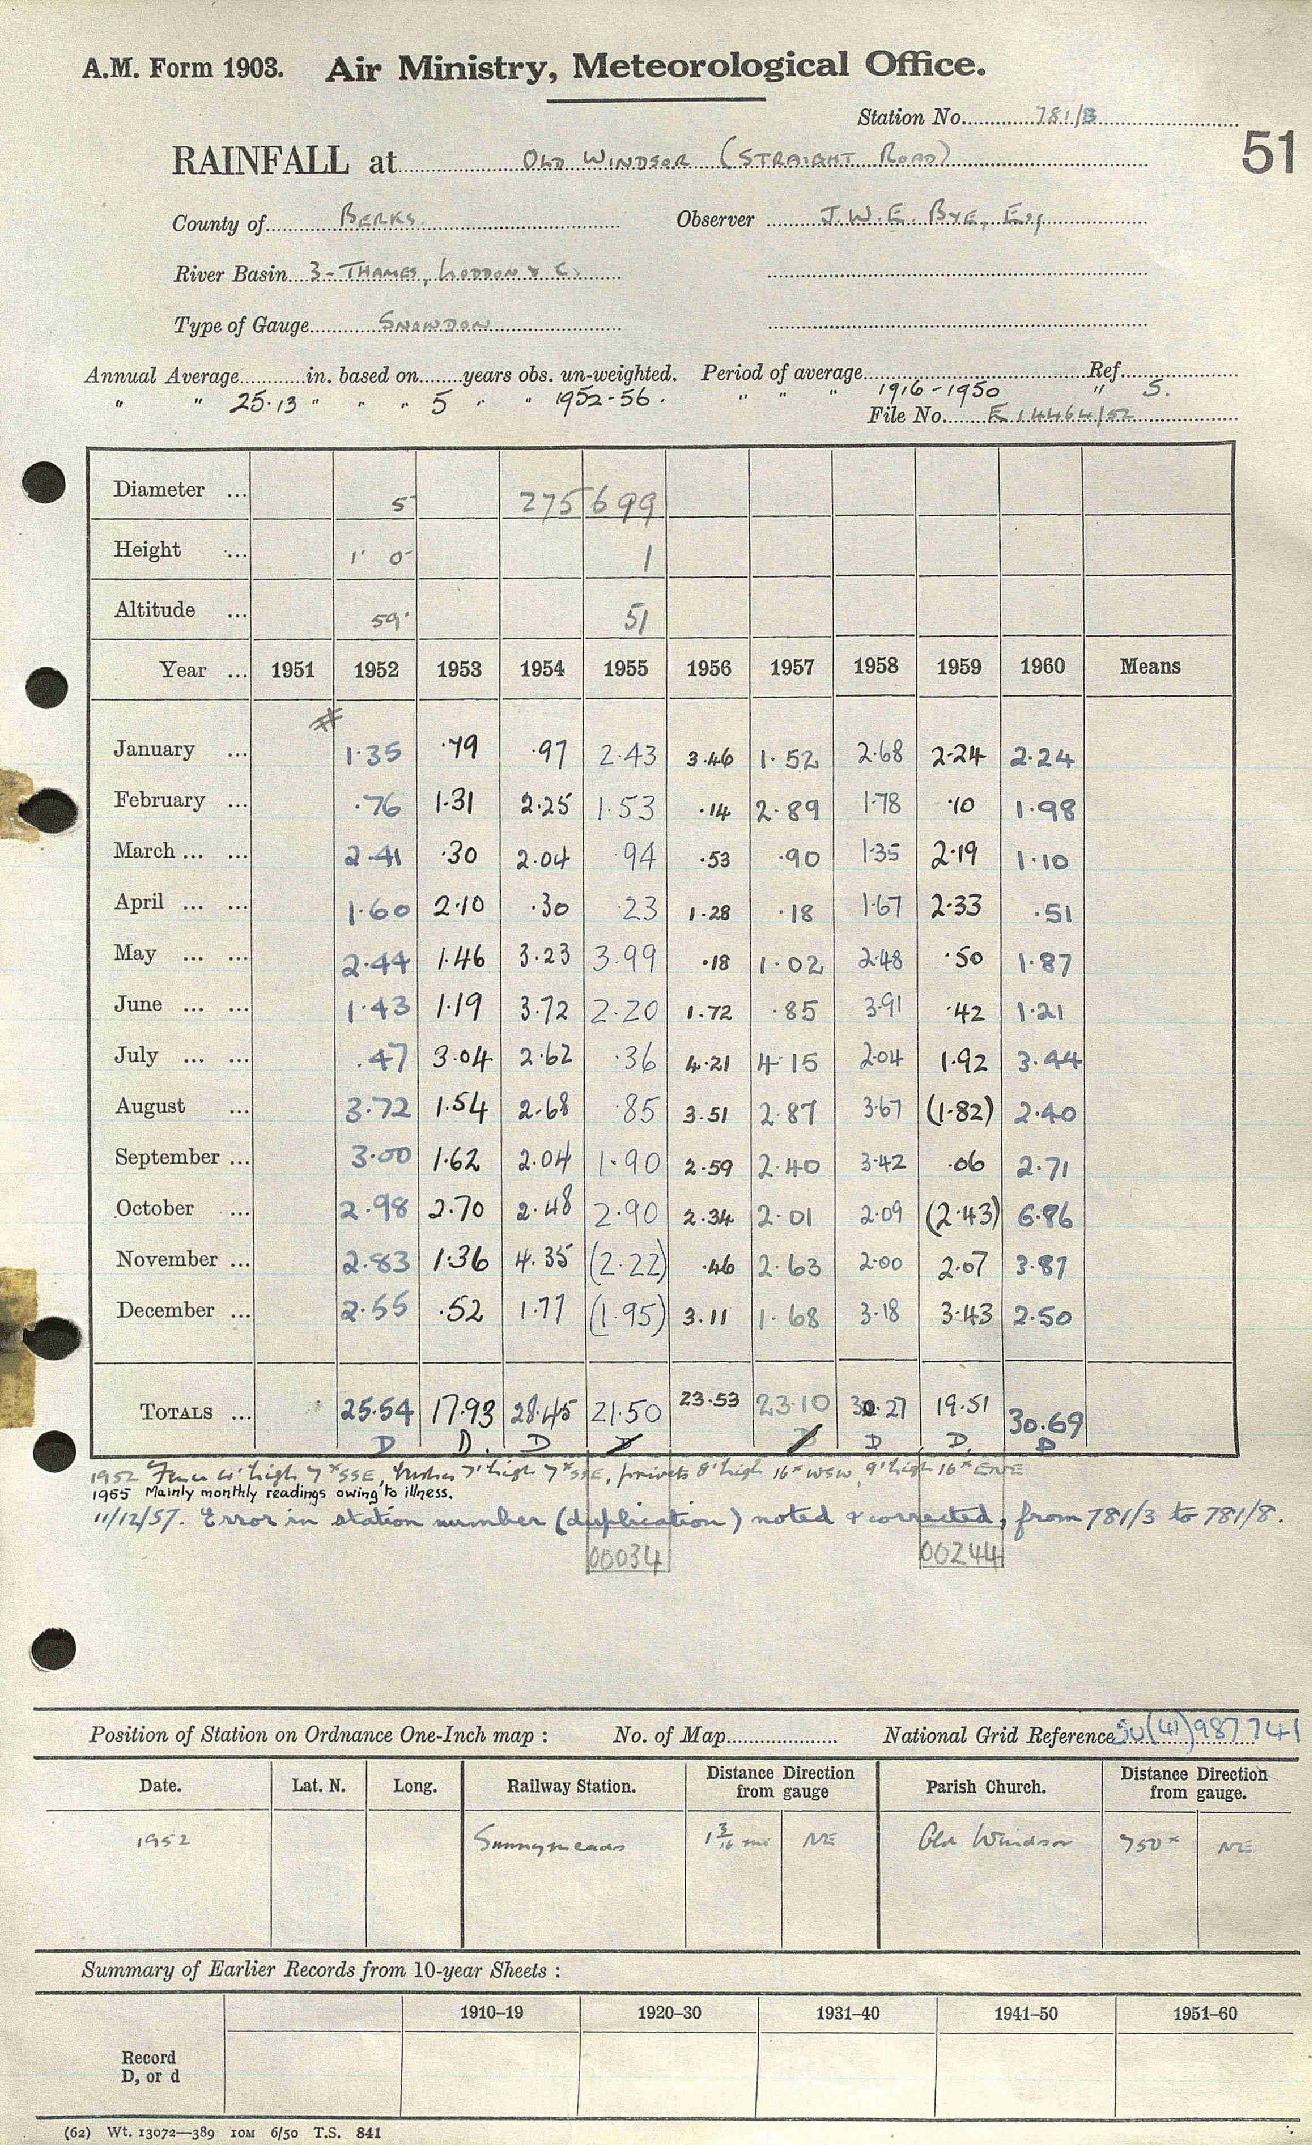 A.M. Form 1903. Air Ministry, Meteorological Office.
Station No. 781/8
51
RAINFALL at OLD WINDSOR (STRAIGHT ROAD)
County of BERKS. Observer J.W.E. BYE, Esq
River Basin 3-THAMES, LODDON & C.
Type of Gauge SNOWDON
Annual Average in. based on years obs. un-weighted. Period of average Ref.
" " 25.13 " " " 5 " " 1952-56. " " " 1916-1950 " S.
File No. E 14464/52
Diameter ... 5 275699
Height ... 1' 0 1
Altitude ... 59' 51
Year ... 1951 1952 1953 1954 1955 1956 1957 1958 1959 1960 Means
#
January ... 1.35 .79 .97 2.43 3.46 1.52 2.68 2.24 2.24
February ... .76 1.31 2.25 1.53 .14 2.89 1.78 .10 1.98
March ... ... 2.41 .30 2.04 94 .53 .90 1.35 2.19 1.10
April ... ... 1.60 2.10 .30 23 1.28 .18 1.67 2.33 .51
May ... ... 2.44 1.46 3.23 3.99 .18 1.02 2.48 .50 1.87
June ... ... 1.43 1.19 3.72 2.20 1.72 .85 3.91 .42 1.21
July ... ... .47 3.04 2.62 .36 4.21 4 15 2.04 1.92 3.44
August ... 3.72 1.54 2.68 85 3.51 2.87 3.67 (1.82) 2.40
September ... 3.00 1.62 2.04 1.90 2.59 2.40 3.42 .06 2.71
October ... 2.98 2.70 2.48 2.90 2.34 2.01 2.09 (2.43) 6.86
November ... 2.83 1.36 4.35 (2.22) .46 2.63 2.00 2.07 3.87
December ... 2.55 .52 1.77 (1.95) 3.11 1.68 3.18 3.43 2.50
TOTALS ... 25.54 17.93 28.45 21.50 23.53 23.10 30.27 19.51 30.69
D D. D D D D D. D
1952 Fence 4' high 7x SSE, bushes 7' high 7x SSE, privets 8' high 16x WSW, 9' high 16x ENE
1955 Mainly monthly readings owing to illness.
11/12/57. Error in station number (duplication) noted & corrected, from 781/3 to 781/8.
00034 00244
Position of Station on Ordnance One-Inch map : No. of Map National Grid Reference SU(41)987 741
Date. Lat. N. Long. Railway Station. Distance from Direction gauge Parish Church. Distance from Direction gauge.
1952 Sunnymeads 1 3/16 mi NE Old Windsor 750x NE
Summary of Earlier Records from 10-year Sheets :
1910–19 1920–30 1931–40 1941–50 1951–60
Record
D, or d
(62) Wt. 13072—389 10M 6/50 T.S. 841